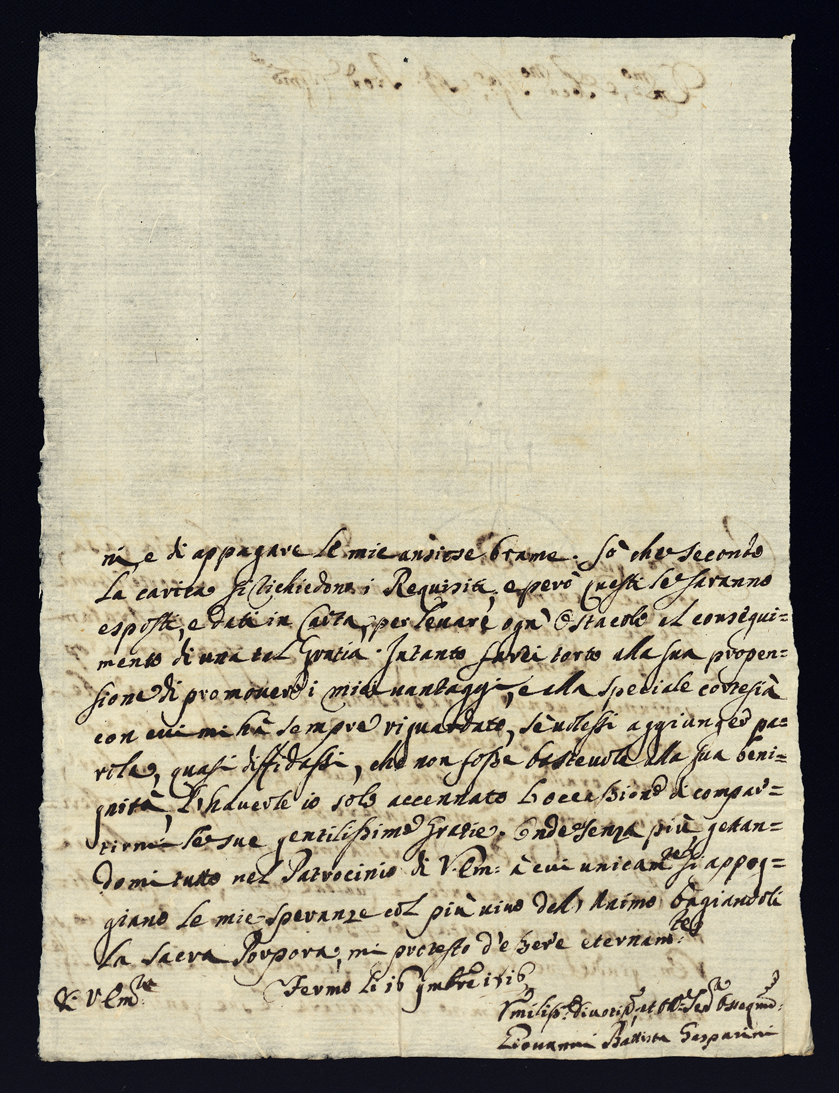 ni, e di appagare le mie ansiose brame. Sò che secondo
la carica si richiedono i Requisiti, e però questi le saranno
esposti, e dati in Carta, per levare ogni Ostacolo al consegui=
mento di una tal Gratia. Intanto farei torto alla sua propen=
sione di promovere i miei vantaggi, e alla speciale cortesia
con cui mi hà sempre riguardato, se volessi aggiunger pa=
role, quasi diffidassi, che non fosse bastevole alla sua beni=
gnità, l'haverle io solo accennato l'occassione di compar=
tirmi le sue gentilissime Gratie. Onde senza più gettan=
domi tutto nel Patrocinio di V. Em: à cui unicam.te si appog=
giano le mie speranze col più vivo dell'Animo bagiandoli
la sacra Porpora, mi protesto d'essere eternam.te
Fermo li 16 9mbre
di V. Em.za
Umiliss.o divotiss.o, et obb.
Giovanni Battista Gasparini